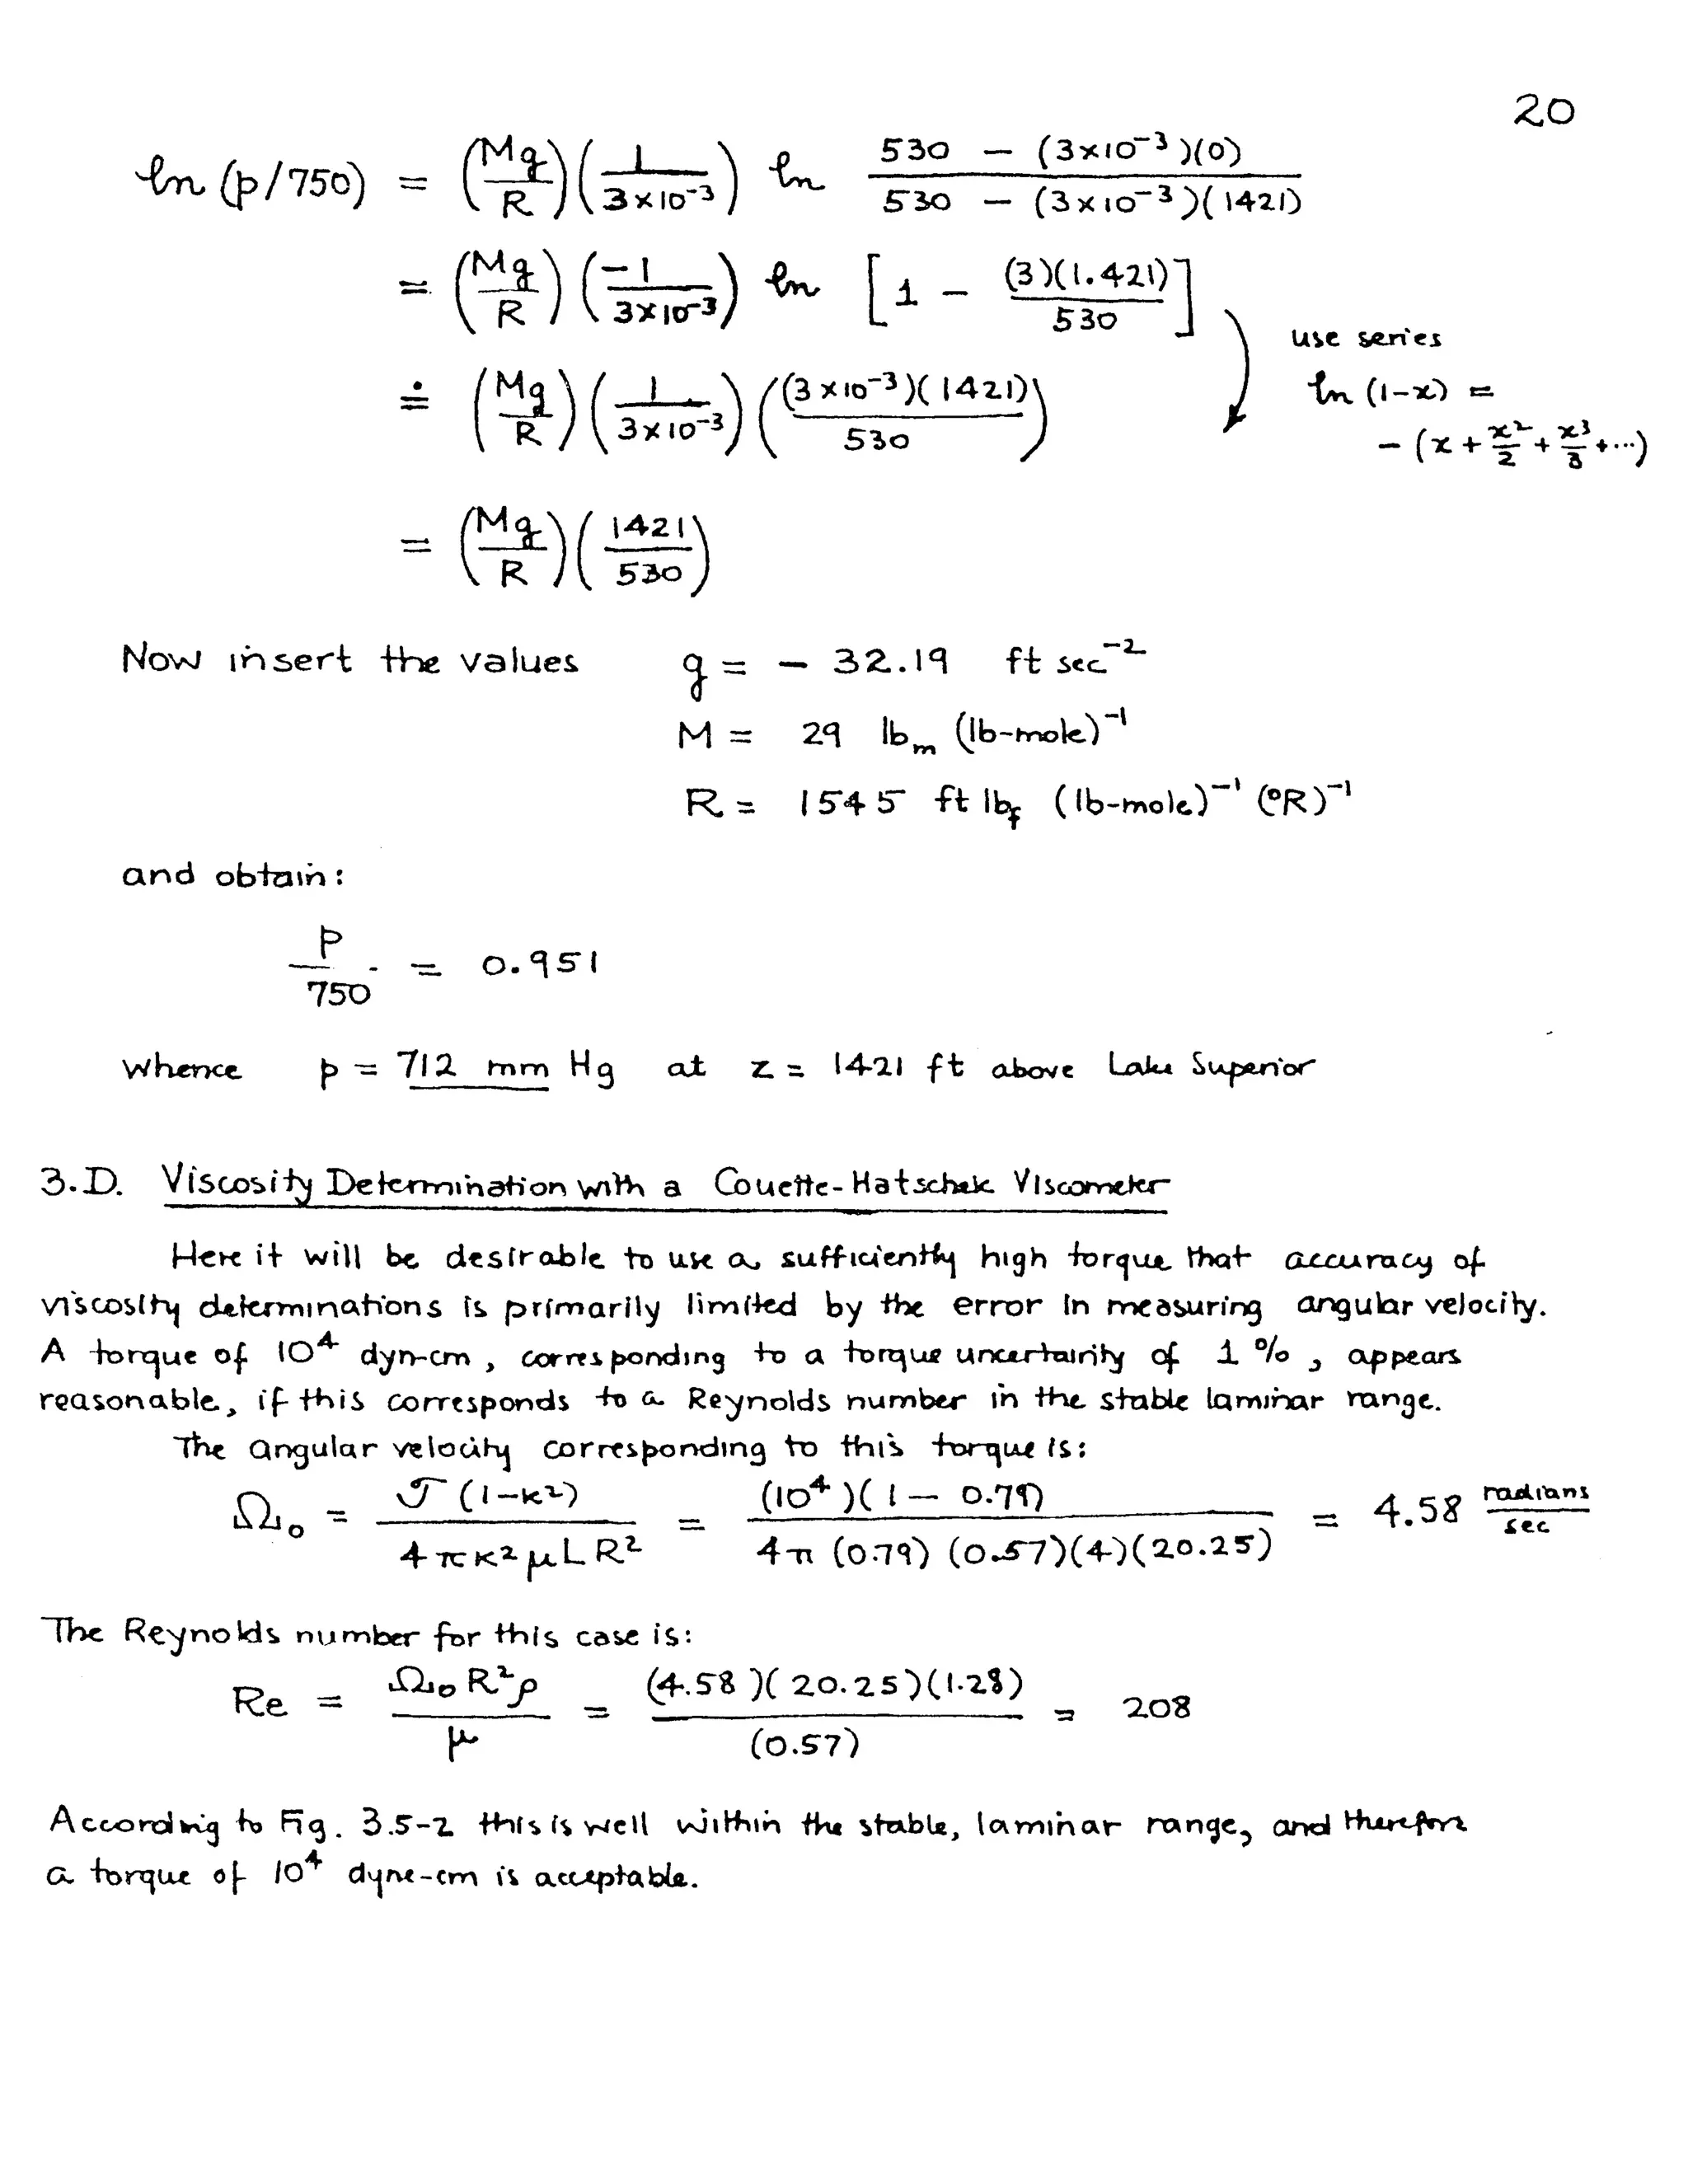 20
ln (p/750) = (Mg/R)(1/3×10⁻³) ln 530 − (3×10⁻³)(0) / 530 − (3×10⁻³)(1421)
= (Mg/R)(−1/3×10⁻³) ln [1 − (3)(1.421)/530]
use series
≐ (Mg/R)(1/3×10⁻³)((3×10⁻³)(1421)/530)
ln (1−x) =
− (x + x²/2 + x³/3 + ...)
= (Mg/R)(1421/530)
Now insert the values g = − 32.19 ft sec⁻²
M = 29 lbₘ (lb-mole)⁻¹
R = 1545 ft lb_f (lb-mole)⁻¹ (°R)⁻¹
and obtain:
p/750 = 0.951
whence p = 712 mm Hg at z = 1421 ft above Lake Superior
3.D. Viscosity Determination with a Couette-Hatschek Viscometer
Here it will be desirable to use a sufficiently high torque that accuracy of
viscosity determinations is primarily limited by the error in measuring angular velocity.
A torque of 10⁴ dyn-cm, corresponding to a torque uncertainity of 1 %, appears
reasonable, if this corresponds to a Reynolds number in the stable laminar range.
The angular velocity corresponding to this torque is:
Ω₀ = 𝒯(1−κ²) / 4πκ²μLR² = (10⁴)(1 − 0.79) / 4π (0.79) (0.57)(4)(20.25) = 4.58 radians/sec
The Reynolds number for this case is:
Re = Ω₀R²ρ / μ = (4.58)(20.25)(1.28) / (0.57) = 208
According to Fig. 3.5-2 this is well within the stable, laminar range, and therefore
a torque of 10⁴ dyne-cm is acceptable.